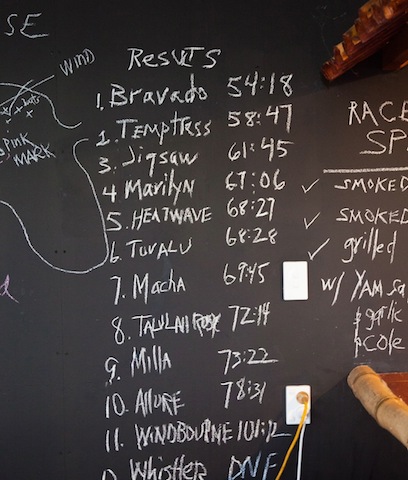 SE
WIND
PINK
MARK
RESULTS
1. Bravado 54:18
2. TEMPTRESS 58:47
3. Jigsaw 61:45
4 Marilyn 67:06
5. HEATWAVE 68:27
6. TUVALU 68:28
7. Macha 69:45
8. TALULAH ROXY 72:14
9. Milla 73:22
10. Allure 78:31
11. WINDBOURNE 101:12
Whistler DNF
RACE
SP
✓ SMOKED
✓ SMOKED
✓ grilled
w/ YAM sa
garlic
cole